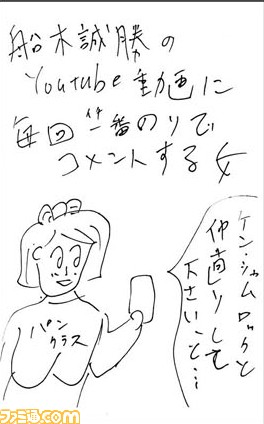 船木誠勝の
Youtube動画に
毎回一番のりで
コメントする女
ケン・シャムロックと
仲直りして
下さいこと…
パン
クラス
ファミ通.com